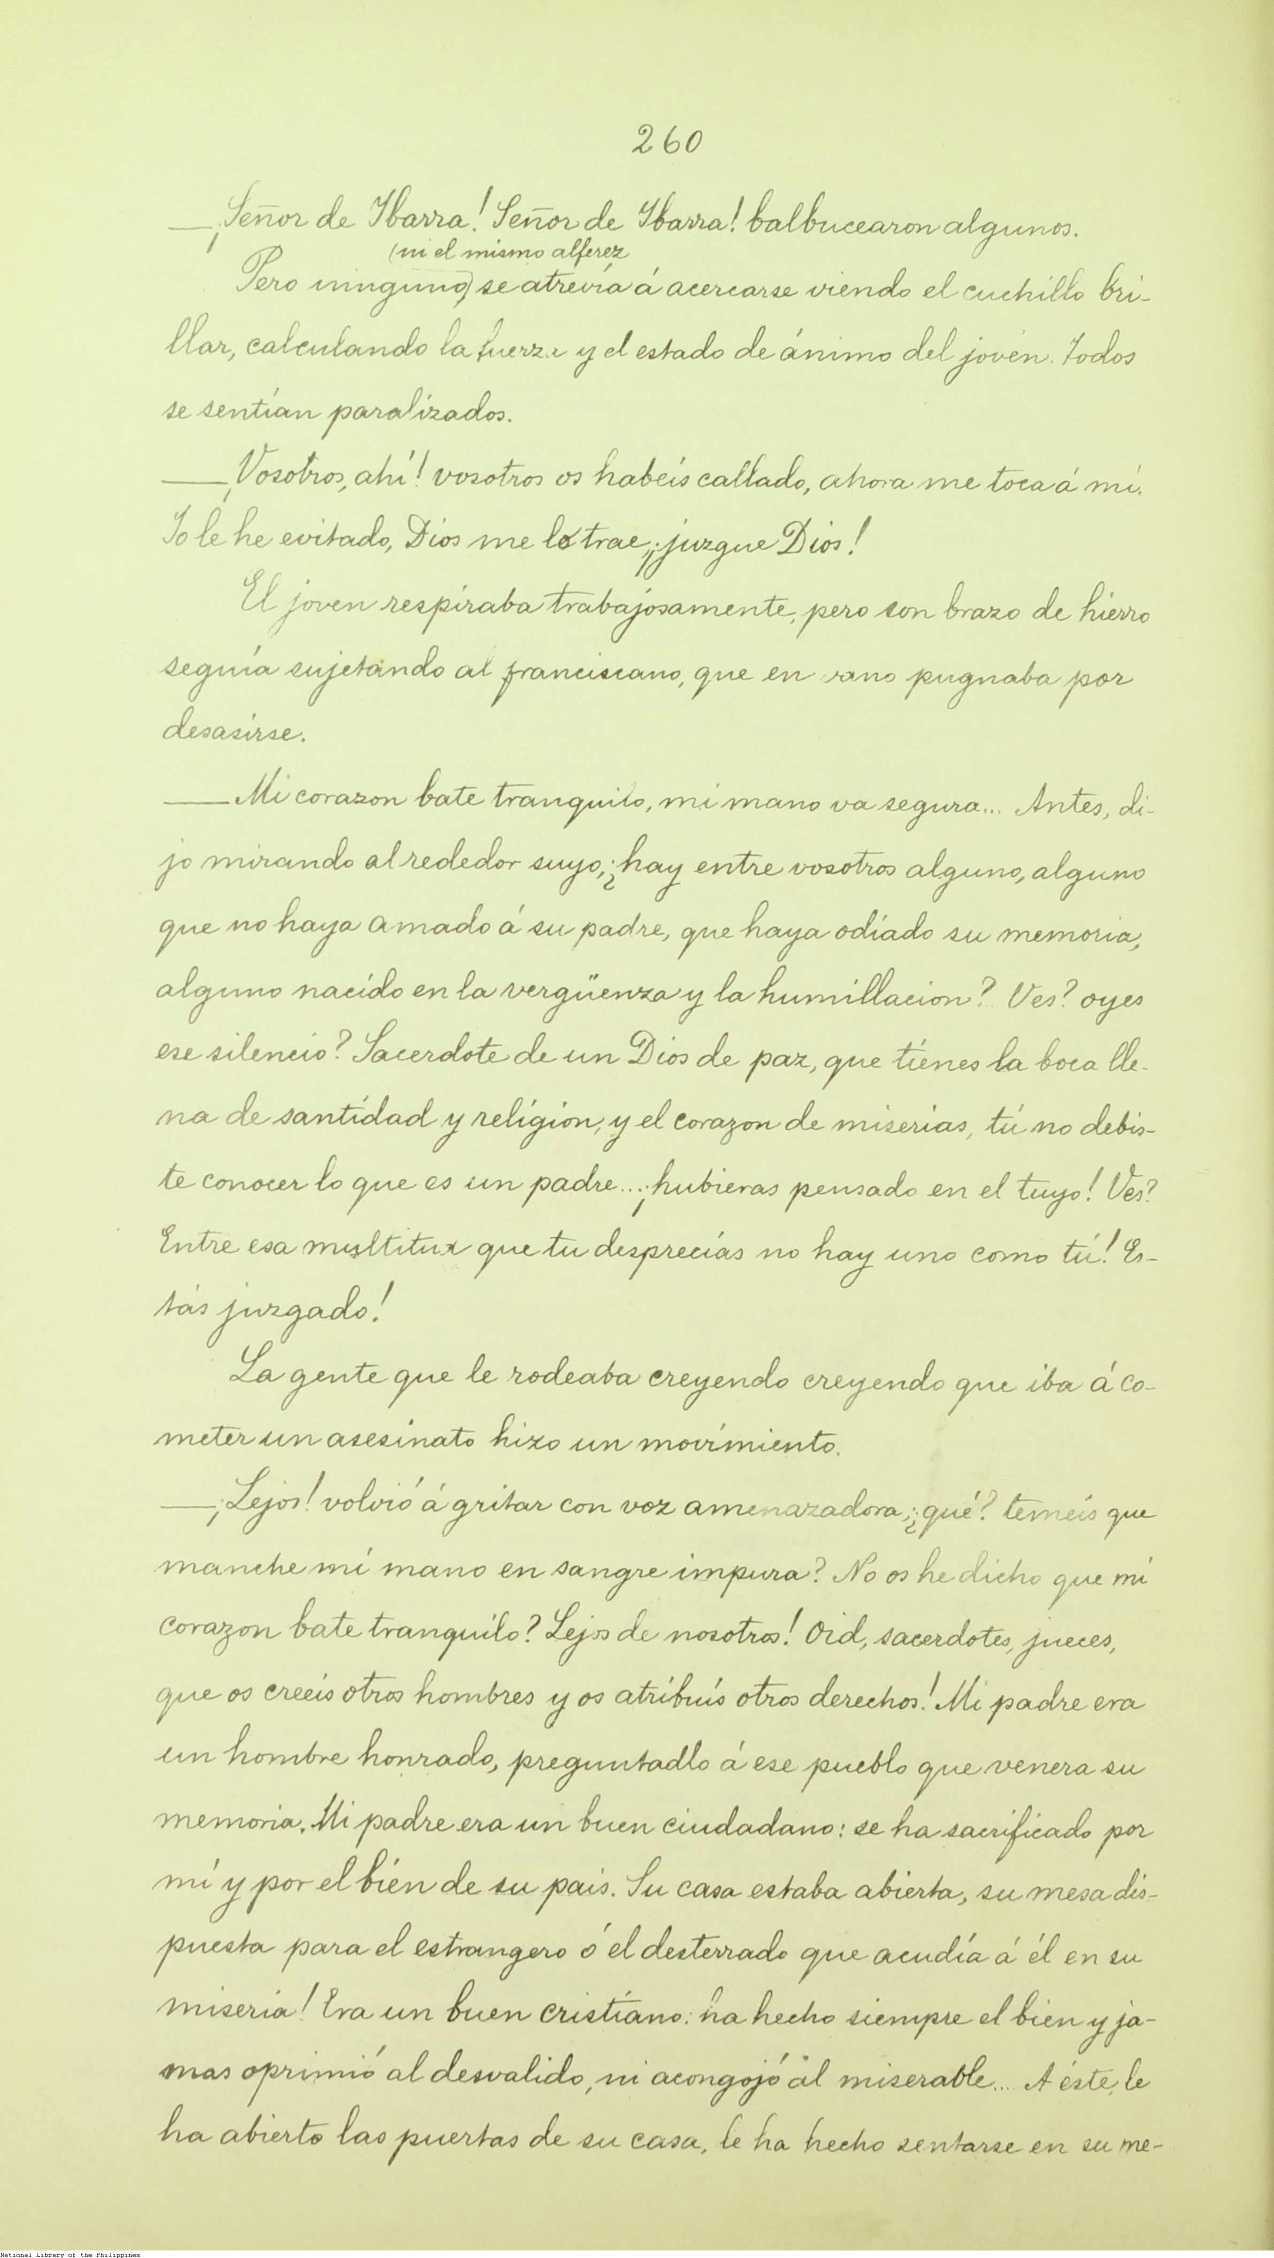 260
—¡Señor de Ibarra! Señor de Ibarra! balbucearon algunos.
(ni el mismo alferez
Pero ninguno) se atrevía á acercarse viendo el cuchillo bri-
llar, calculando la fuerza y el estado de ánimo del joven. Todos
se sentían paralizados.
—¡Vosotros, ahí! vosotros os habeis callado, ahora me toca á mí.
Yo le he evitado, Dios me lo trae, ¡juzgue Dios!
El joven respiraba trabajosamente, pero son brazo de hierro
seguía sujetando al franciscano, que en vano pugnaba por
desasirse.
—Mi corazon bate tranquilo, mi mano va segura... Antes, di-
jo mirando al rededor suyo, ¿hay entre vosotros alguno, alguno
que no haya amado á su padre, que haya odiado su memoria,
alguno nacido en la vergüenza y la humillacion? Ves? oyes
ese silencio? Sacerdote de un Dios de paz, que tienes la boca lle-
na de santidad y religion, y el corazon de miserias, tú no debis-
te conocer lo que es un padre...¡hubieras pensado en el tuyo! Ves?
Entre esa multitud que tu desprecias no hay uno como tú! Es-
tás juzgado!
La gente que le rodeaba creyendo creyendo que iba á co-
meter un asesinato hizo un movimiento.
—¡Lejos! volvió á gritar con voz amenazadora, ¿qué? temeis que
manche mi mano en sangre impura? No os he dicho que mi
corazon bate tranquilo? Lejos de nosotros! Oid, sacerdotes, jueces,
que os creeis otros hombres y os atribuís otros derechos! Mi padre era
un hombre honrado, preguntadlo á ese pueblo que venera su
memoria. Mi padre era un buen ciudadano: se ha sacrificado por
mí y por el bien de su pais. Su casa estaba abierta, su mesa dis-
puesta para el estrangero ó el desterrado que acudía á él en su
miseria! Era un buen cristiano: ha hecho siempre el bien y ja-
mas oprimió al desvalido, ni acongojó al miserable... A éste le
ha abierto las puertas de su casa, le ha hecho sentarse en su me-
National Library of the Philippines